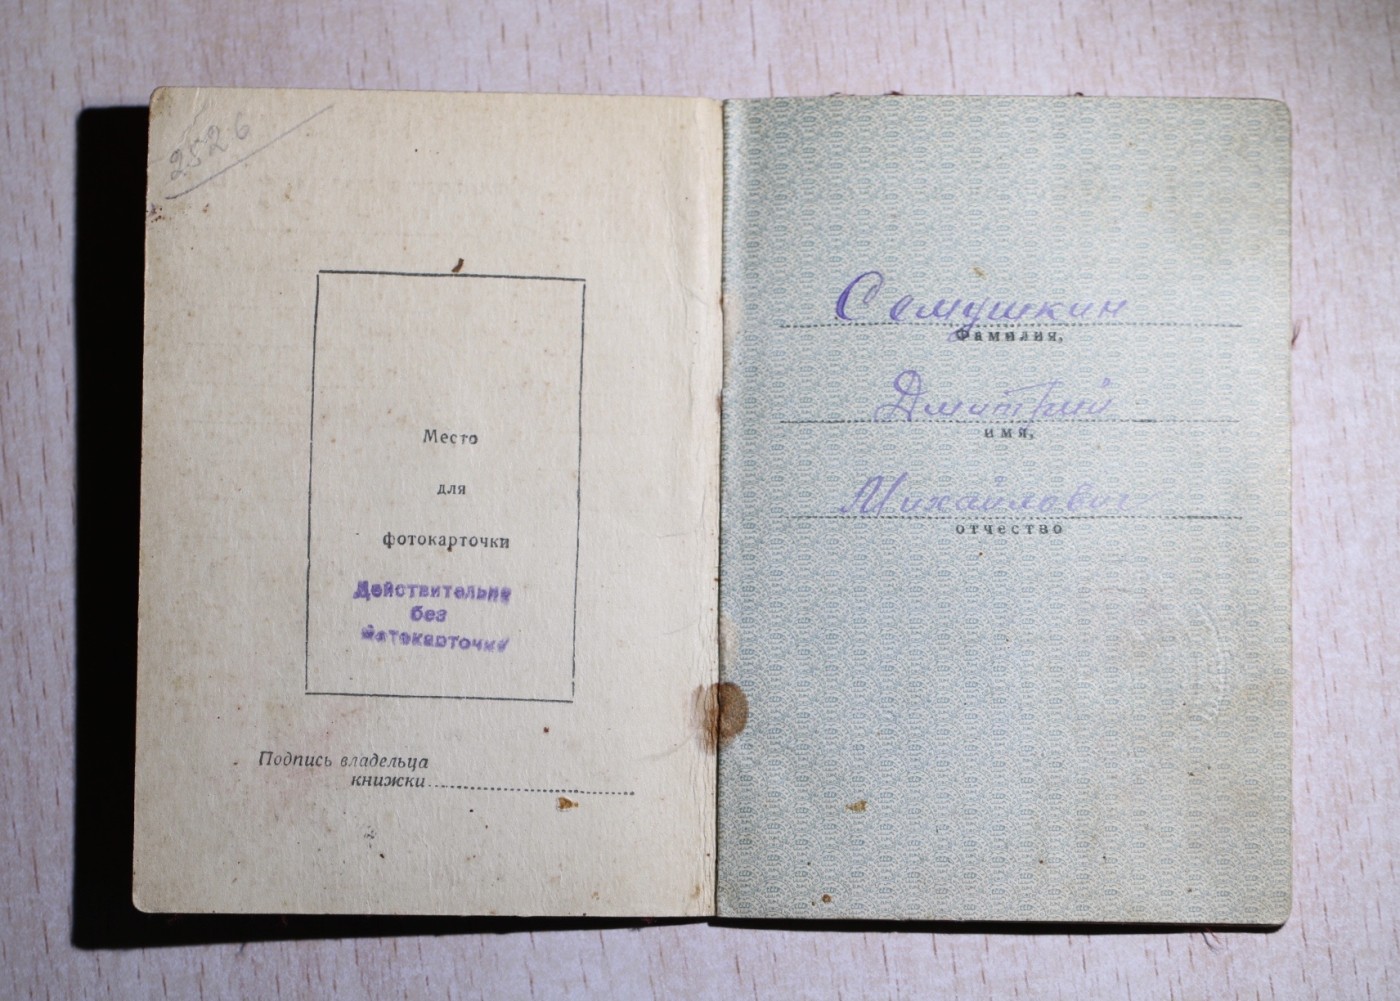 2526
Место
для
фотокарточки
Действительно
без
фотокарточки
Подпись владельца
книжки
Семушкин
Фамилия,
Дмитрий
имя,
Михайлович
отчество